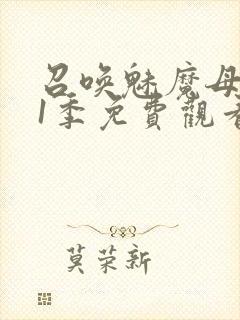 召唤魅魔母
1季免費觀看
莫荣新